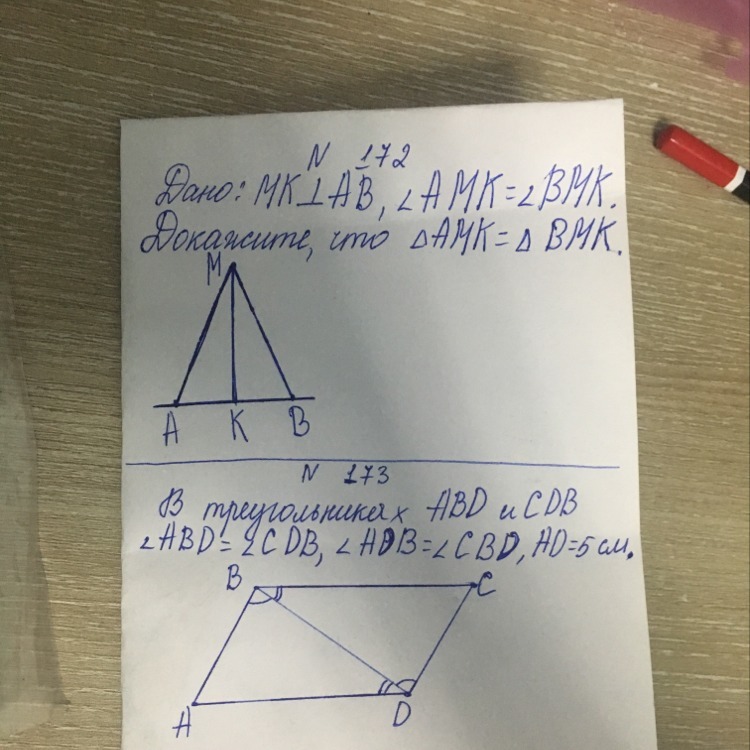 N 172
Дано: MK⊥AB, ∠AMK=∠BMK.
Докажите, что △AMK=△BMK.
M
A K B
N 173
В треугольниках ABD и CDB
∠ABD=∠CDB, ∠ADB=∠CBD, AD=5 см.
B C
A D